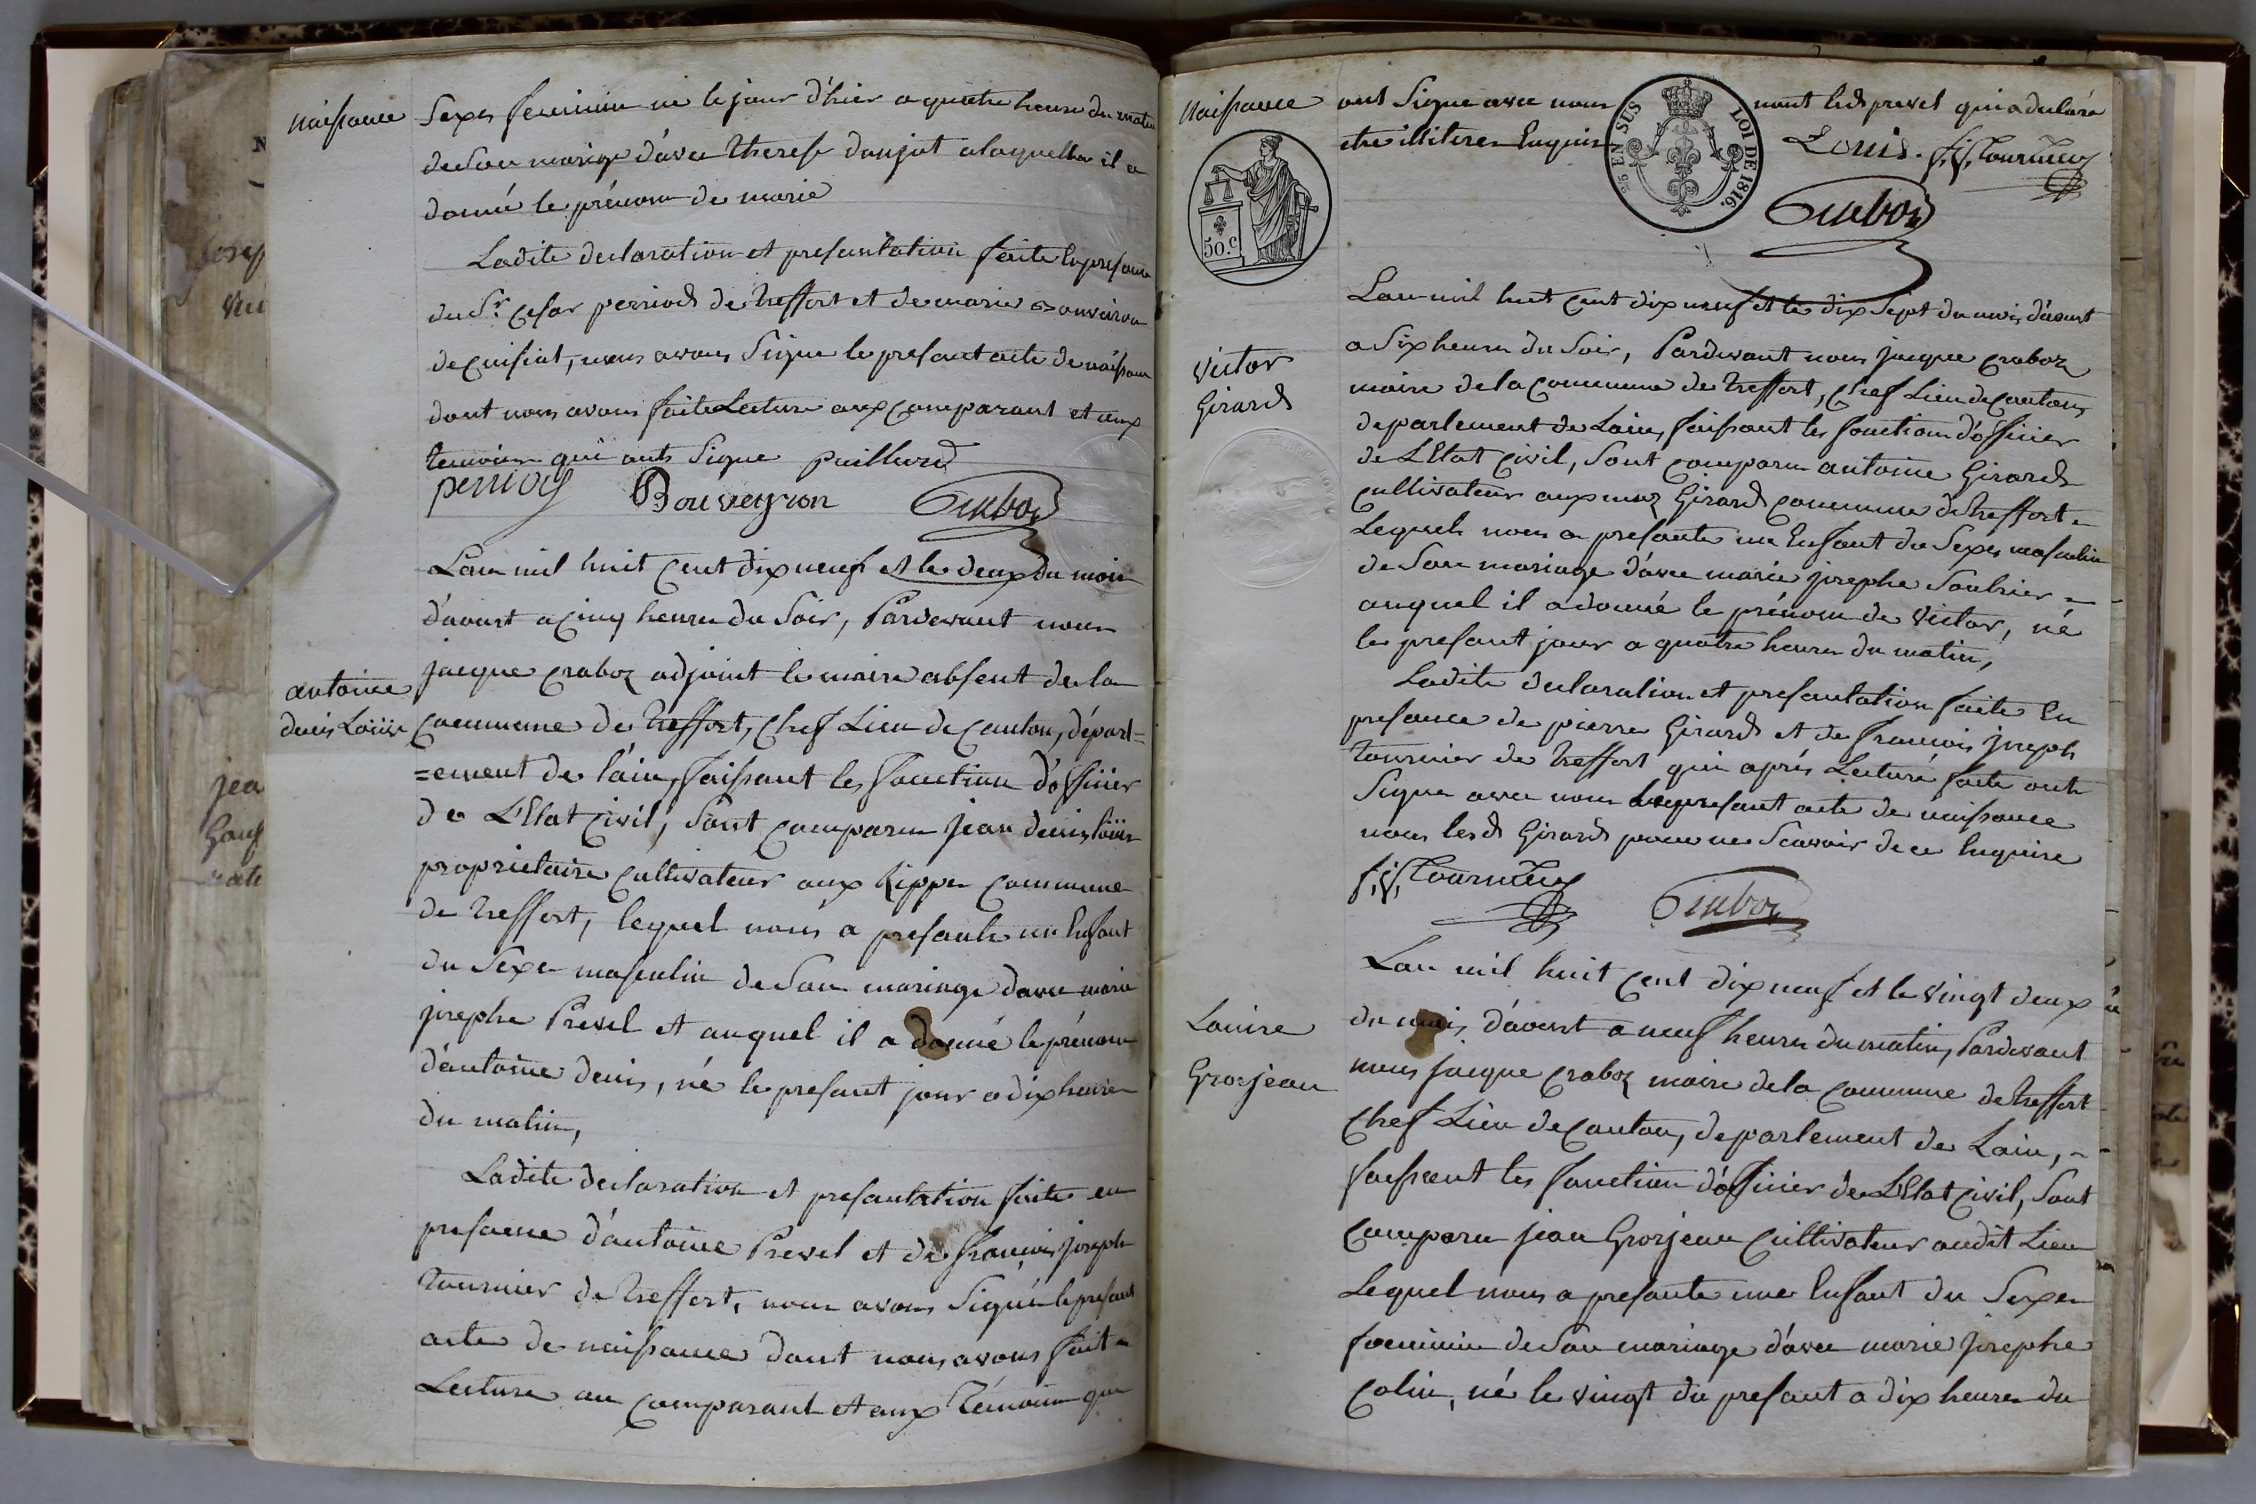 naissance
Sexes feminin né le jour d'hier a quatre heure du matin
de Son mariage d'avec therese danjat alaquelle il a
donné le prénom de marie
Ladite declaration et presantation faite En presance
du Sr. Cesar perriod de treffort et de marie Bouveiron
de Cuisiat, nous avons Signe le presant acte de naissance
dont nous avons faite Lecture aux comparant et aux
temoins qui onts Signe puilliard
perriod Bouveyron Craboz
Lan mil huit Cent dix neuf et le deux du mois
d'aoust a Cinq heures du Soir, Pardevant nous
jacque Craboz adjoint le maire absent de la
antoine
denis Loüis
Commune de treffort, Chef Lieu de Canton, départ=
=ement de l'ain, faissant les fonction d'officier
de L'Etat Civil, Sont comparu jean denis loüis
proprietaire Cultivateur aux Rippes Commune
de treffort, lequel nous a presante un Enfant
du Sexe masculin de Son mariage d'avec marie
josephe Prevel et auquel il a donné le prénom
d'antoine denis, né le presant jour a dix heures
du matin,
Ladite declaration et presantation faite en
presance d'antoine Prevel et de francois joseph
tournier de treffort, nous avons Signé le presant
acte de naissance dont nous avons fait
Lecture au Comparant et aux Témoins qui
naissance
ont Signe avec nous nont led prevel qui a declaré
etre illitere Enquis
25 c EN SUS LOI DE 1816.
50.c
Louis. f. j. Tournier
Craboz
Lan mil huit Cent dix neuf et le dix Sept du mois d'aoust
a Six heures du Soir, Pardevant nous jacque Craboz
Victor
Girard
maire de la Commune de treffort, Chef Lieu de Canton,
departement de Lain, faissant les fonction d'officier
de L'Etat Civil, Sont comparu antoine Girard
Cultivateur aux maz Girard Commune de treffort
Lequel nous a presante un Enfant du Sexes masculin
de Son mariage d'avec marie josephe Soulnier
auquel il a donné le prénom de Victor, né
le presant jour a quatre heures du matin,
Ladite declaration et presantation faite En
presance de pierre Girard et de francois joseph
tournier de treffort qui aprés Lecture faite onts
Signe avec nous le presant acte de naissance
nous led Girard pour ne Scavoir de ce Enquise
f. j. Tournier Craboz
Lan mil huit Cent dix neuf et le vingt deux
Louise
Grosjean
du mois d'aoust a neuf heures du matin, Pardevant
nous jacque Craboz maire de la Commune de treffort
Chef Lieu de Canton, departement de Lain,
faissant les fonction d'officier de L'Etat Civil, Sont
Comparu jean Grosjean Cultivateur audit Lieu
Lequel nous a presante une Enfant du Sexe
foeminin de Son mariage d'avec marie josephe
Colin, né le vingt du presant a dix heures du